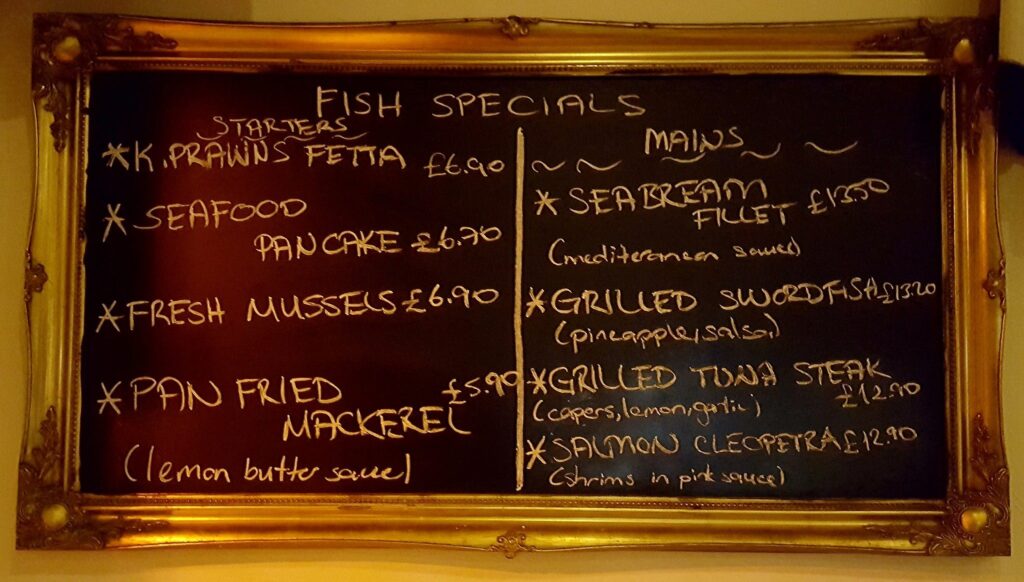 FISH SPECIALS
STARTERS
*K.PRAWNS FETTA £6.90
*SEAFOOD
PANCAKE £6.70
*FRESH MUSSELS £6.90
*PAN FRIED £5.90
MACKEREL
(lemon butter sauce)
MAINS
*SEABREAM
FILLET £13.50
(mediteranean sauce)
*GRILLED SWORDFISH £13.20
(pineapple, salsa,)
*GRILLED TUNA STEAK
£12.90
(capers, lemon, garlic)
*SALMON CLEOPETRA £12.90
(shrims in pink sauce)